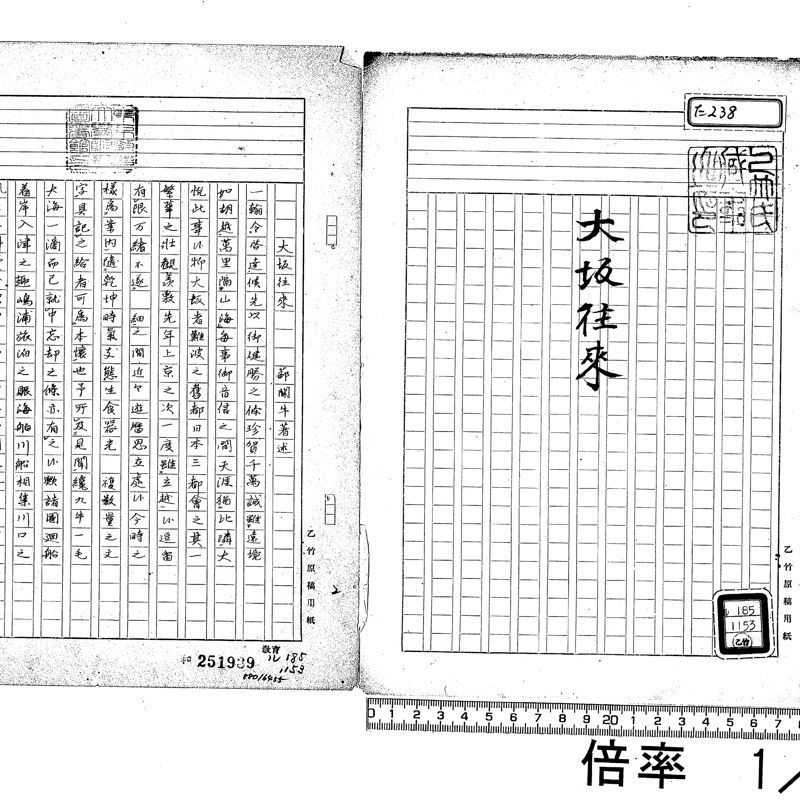 た238
大坂往來
185
1153
乙竹
乙竹原稿用紙
大坂往來　鄙聞牛著述
一翰令啓達候先以御健勝之條珍賀千萬誠雖遠境
如胡越萬里隔山海毎事御音信之間天涯猶比隣大
悦此事ニ候抑大坂者難波之舊都日本三都會之其一
繁華之壯觀羨敷先年上京之次一度雖立越ニ候逗留
有限万緒不遂細之間近々遊歴思立處ニ候今時之
樣為案内隨乾坤時氣支態生食器光複数量之文
字具記之給者可為本懷也予所及見聞纔九牛一毛
大海一滴而已就中忘却之條亦有之ニ候歟諸國廻船
着岸入津之趣嶋浦旅泊之眼海船川船相集川口之
乙竹原稿用紙
2
教育
和 251939
ル185
1153
倍率 1/
0 1 2 3 4 5 6 7 8 9 20 1 2 3 4 5 6 7